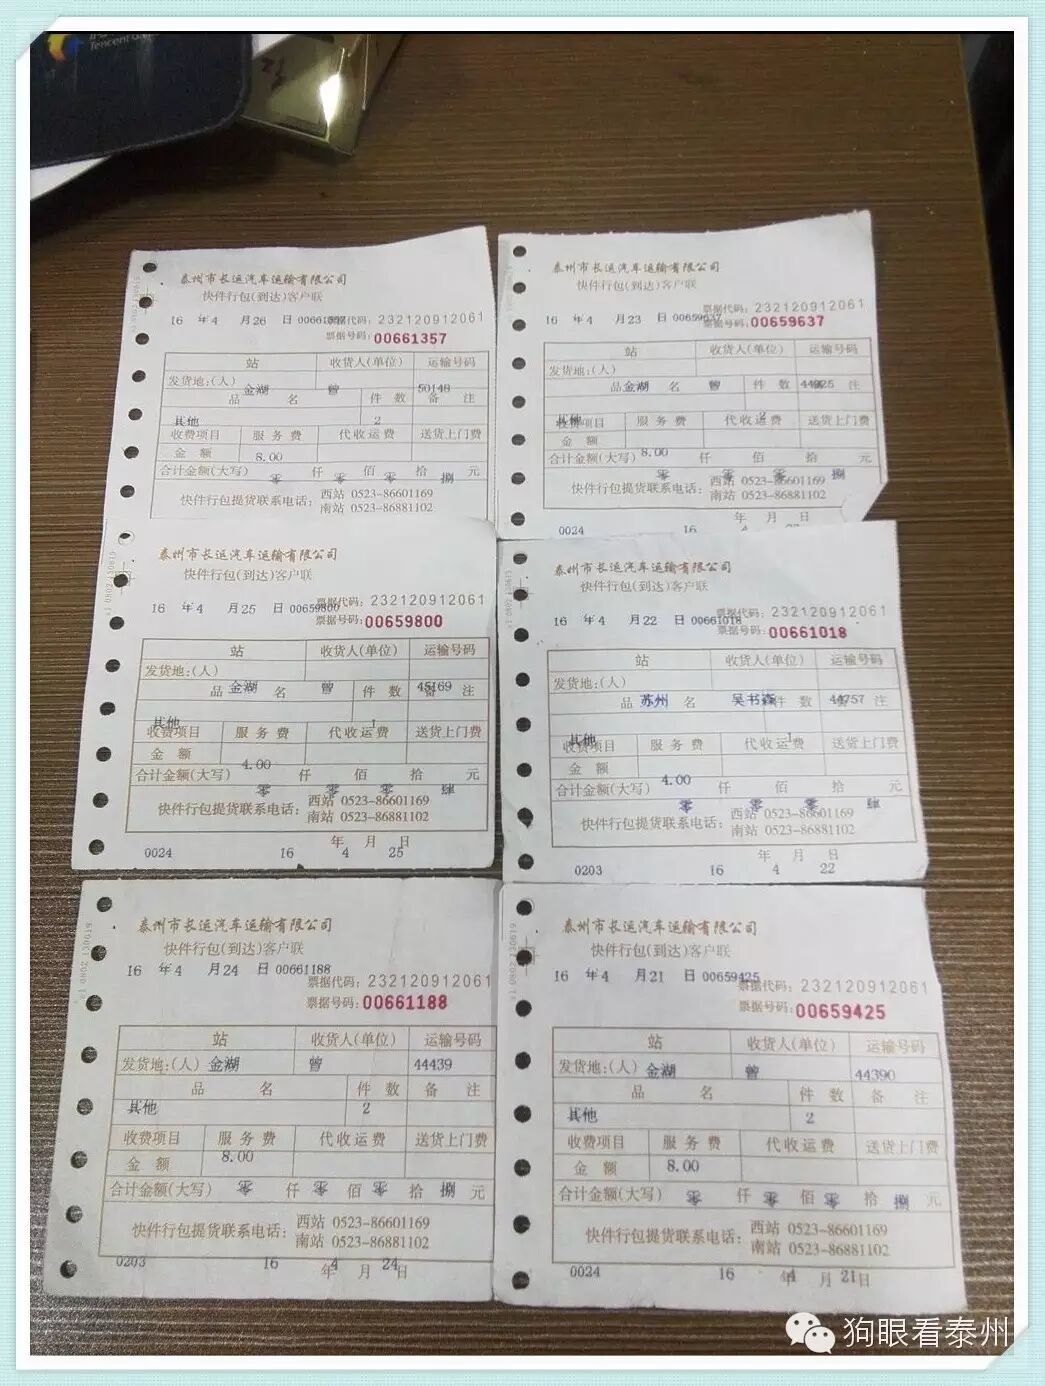 Tencent
泰州市长运汽车运输有限公司
快件行包(到达)客户联
16 年 4 月 26 日 票据代码: 232120912061
票据号码: 00661357
站 收货人(单位) 运输号码
发货地:(人) 金湖 曾 50148
品 名 件 数 备 注
其他 2
收费项目 服 务 费 代收运费 送货上门费
金 额 8.00
合计金额(大写) 零 仟 零 佰 零 拾 捌 元
快件行包提货联系电话: 西站 0523-86601169
南站 0523-86881102
泰州市长运汽车运输有限公司
快件行包(到达)客户联
16 年 4 月 23 日 00659637 票据代码: 232120912061
票据号码: 00659637
站 收货人(单位) 运输号码
发货地:(人)
品 金湖 名 曾 件 数 注
其他 2
收费项目 服 务 费 代收运费 送货上门费
金 额 8.00
合计金额(大写) 零 仟 零 佰 零 拾 捌 元
快件行包提货联系电话: 西站 0523-86601169
南站 0523-86881102
年 月 日
0024 16 4
泰州市长运汽车运输有限公司
快件行包(到达)客户联
16 年 4 月 25 日 00659800 票据代码: 232120912061
票据号码: 00659800
站 收货人(单位) 运输号码
发货地:(人)
品 金湖 名 曾 件 数 45169 备 注
其他 1
收费项目 服 务 费 代收运费 送货上门费
金 额 4.00
合计金额(大写) 零 仟 零 佰 零 拾 肆 元
快件行包提货联系电话: 西站 0523-86601169
南站 0523-86881102
年 月 日
0024 16 4 25
泰州市长运汽车运输有限公司
快件行包(到达)客户联
16 年 4 月 22 日 00661018 票据代码: 232120912061
票据号码: 00661018
站 收货人(单位) 运输号码
发货地:(人)
品 苏州 名 吴书森 件 数 44757 注
其他 1
收费项目 服 务 费 代收运费 送货上门费
金 额 4.00
合计金额(大写) 零 仟 零 佰 零 拾 肆 元
快件行包提货联系电话: 西站 0523-86601169
南站 0523-86881102
年 月 日
0203 16 4 22
泰州市长运汽车运输有限公司
快件行包(到达)客户联
16 年 4 月 24 日 00661188 票据代码: 232120912061
票据号码: 00661188
站 收货人(单位) 运输号码
发货地:(人) 金湖 曾 44439
品 名 件 数 备 注
其他 2
收费项目 服 务 费 代收运费 送货上门费
金 额 8.00
合计金额(大写) 零 仟 零 佰 零 拾 捌 元
快件行包提货联系电话: 西站 0523-86601169
南站 0523-86881102
0203 16 年 4 月 24 日
泰州市长运汽车运输有限公司
快件行包(到达)客户联
16 年 4 月 21 日 00659425 票据代码: 232120912061
票据号码: 00659425
站 收货人(单位) 运输号码
发货地:(人) 金湖 曾 44390
品 名 件 数 备 注
其他 2
收费项目 服 务 费 代收运费 送货上门费
金 额 8.00
合计金额(大写) 零 仟 零 佰 零 拾 捌 元
快件行包提货联系电话: 西站 0523-86601169
南站 0523-86881102
0024 16 年 4 月 21 日
狗眼看泰州